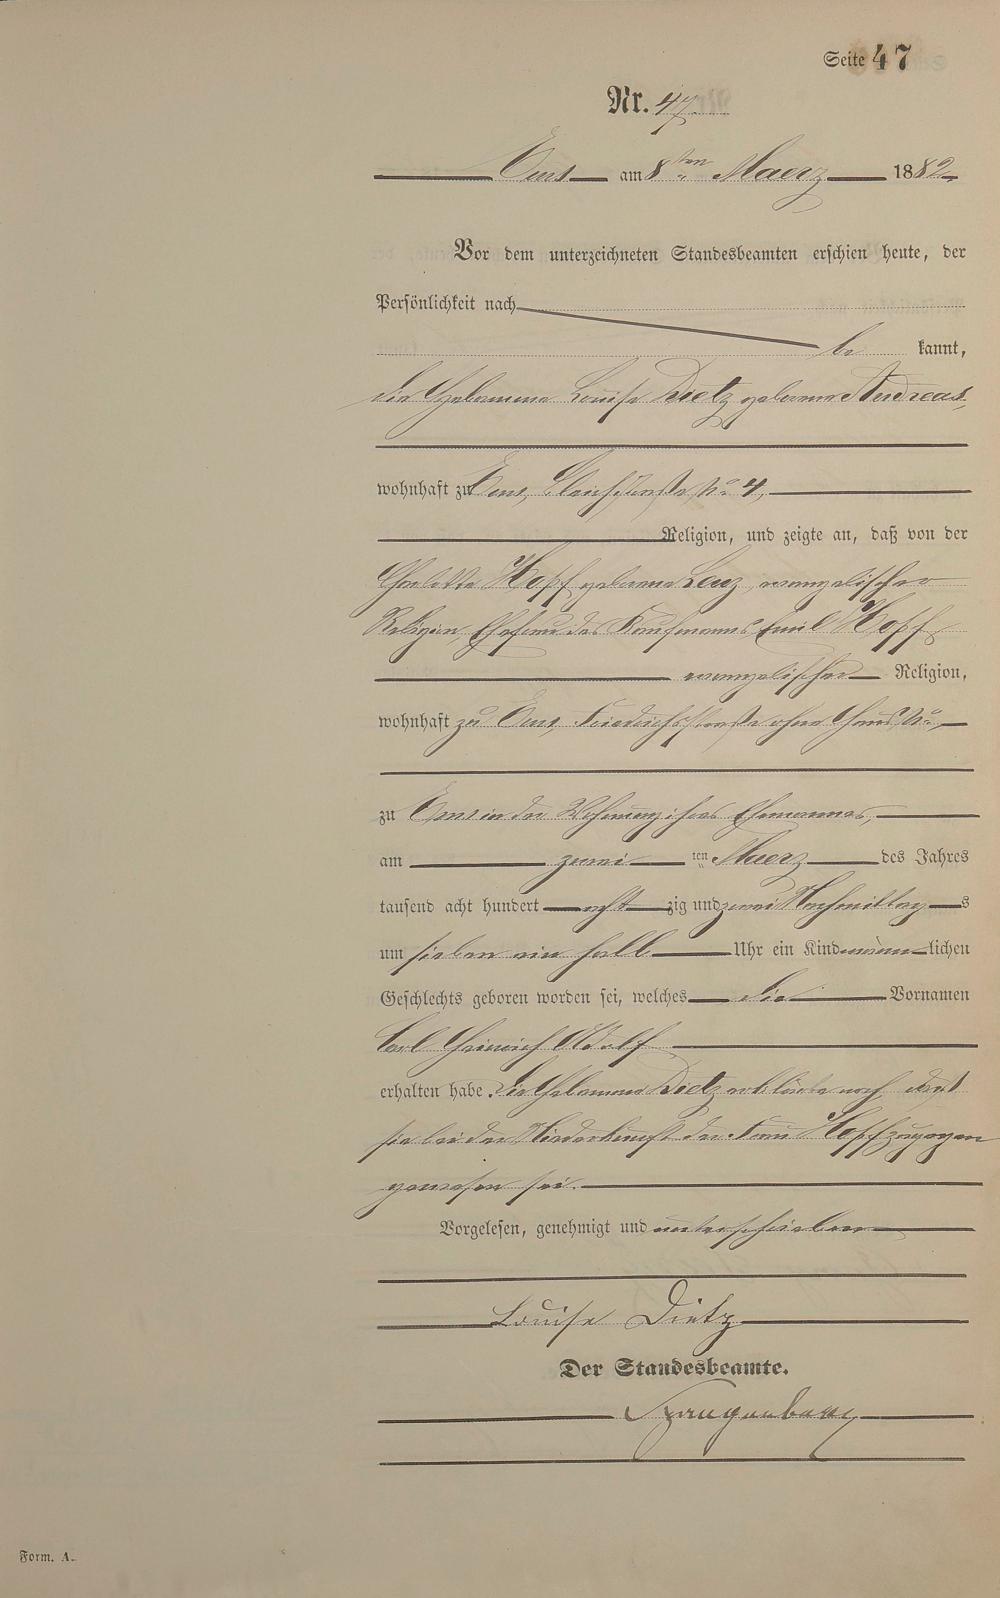 Seite 47
Nr. 47
Ems am 8ten Maerz 1882
Vor dem unterzeichneten Standesbeamten erschien heute, der
Persönlichkeit nach
be kannt,
die Hebamme Louise Dietz geborene Andreas,
wohnhaft zu Ems, Bleichstraße No 4,
Religion, und zeigte an, daß von der
Charlotte Hopf geborene Lenz, evangelischer
Religion, Ehefrau des Kaufmanns Emil Hopf
evangelischer Religion,
wohnhaft zu Ems, Friedrichsstraße ohne Haus No,
zu Ems in der Wohnung ihres Ehemannes,
am zwei ten Maerz des Jahres
tausend acht hundert acht zig und zwei Nachmittag s
um sieben ein halb Uhr ein Kind männ lichen
Geschlechts geboren worden sei, welches die Vornamen
Carl Heinrich Adolf
erhalten habe. Die Hebamme Dietz erklärte noch, daß
sie bei der Niederkunft der Frau Hopf zugegen
gewesen sei.
Vorgelesen, genehmigt und unterschrieben
Louise Dietz
Der Standesbeamte.
Form. A.